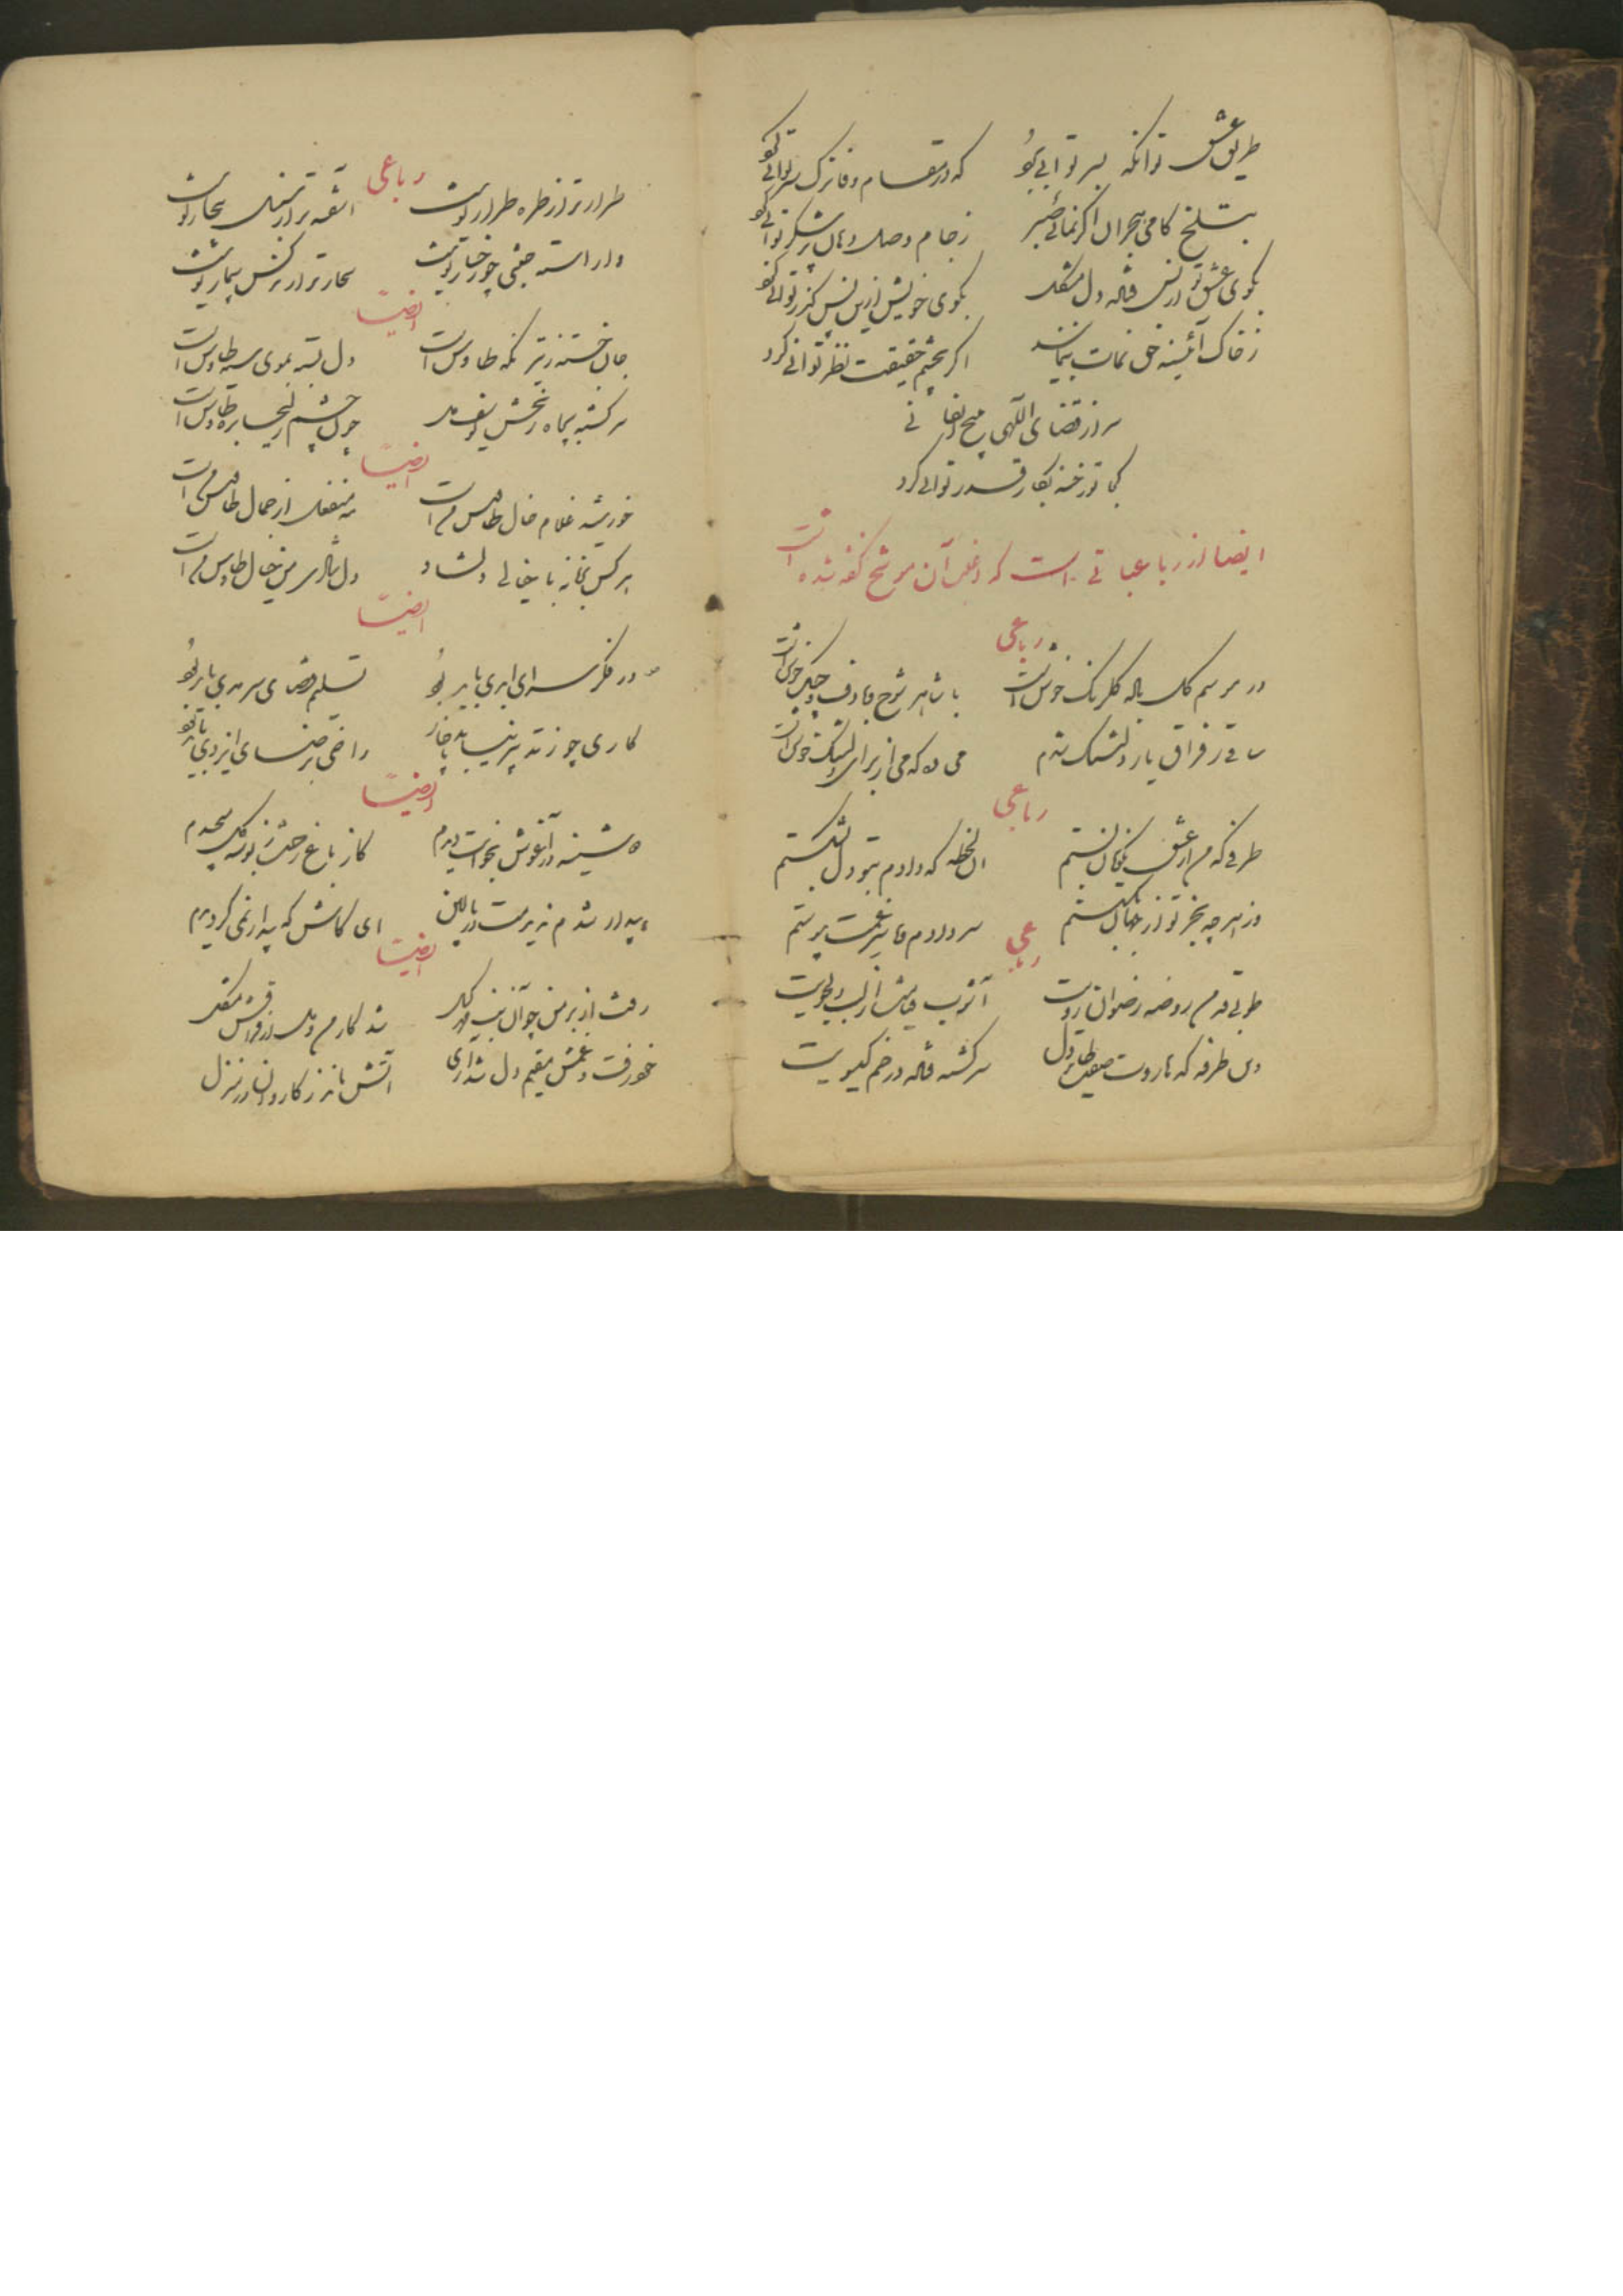 طریق عشق توانکه بسر توانی برد که در مقام وفا ترک سر توانی کرد
بتلخ کامی هجران اگر نمائی صبر ز جام وصل دهان پر شکر توانی کرد
بکوی عشق تو از بس فتاده دل مشکل بکوی خویش ازین پس گذر توانی کرد
ز خاک آئینه حق نمات بنمایند اگر بچشم حقیقت نظر توانی کرد
سر از قضای الهی مپیچ
کجا تو رخنه بکار قدر توانی کرد
ایضا از رباعیاتی است که در آن موشح گفته شده است
رباعی
در موسم گل باده گلرنگ خوش است با شاهد شوخ و دف و چنگ خوش است
ساقی ز فراق یار دلتنگ شدم می ده که می از برای دلتنگ خوش است
رباعی
طرفی که من از عشق نکویان بستم آن لحظه که دادم بتو دل نشکستم
وز هر چه بجز تو از جهان بگسستم سر دادم و با غمت پیوستم
رباعی
طوبی و روضه رضوان رویت آشوب قیامت لب دلجویت
وین طرفه که هاروت صفت دل سرگشته فتاده در خم گیسویت
رباعی
طرارتر از طره طرار تو نیست آشفته تر از سنبل تو نیست
آراسته جنتی چو رخسار تو نیست سحارتر از نرگس بیمار تو نیست
ایضاً
جان خسته ز تیر نگه طاوس است دل بسته بموی سیه طاوس است
سرگشته بچاه زنخش یوسف چون چشم زلیخا بره طاوس است
ایضاً
خورشید غلام خال طاوس من است مه منفعل از جمال طاوس من است
هر کس بخیالی دلشاد دل شادی من خیال طاوس من است
ایضاً
در فکر سرای ابدی باید بود تسلیم قضای سرمدی باید بود
کاری چو ز تدبیر نیاید ناچار راضی برضای ایزدی باید بود
ایضاً
دوشینه در آغوش بخوابت دیدم کز باغ رخت ز بوسه گل میچیدم
بیدار شدم ندیدمت در بالین ای کاش که بیدار نمی گردیدم
ایضاً
رفت از بر من چو آن بت مهر گسل شد کار من و دل از فراقش مشکل
خود رفت و غمش مقیم دل شد آری آتش ماند ز کاروان در منزل